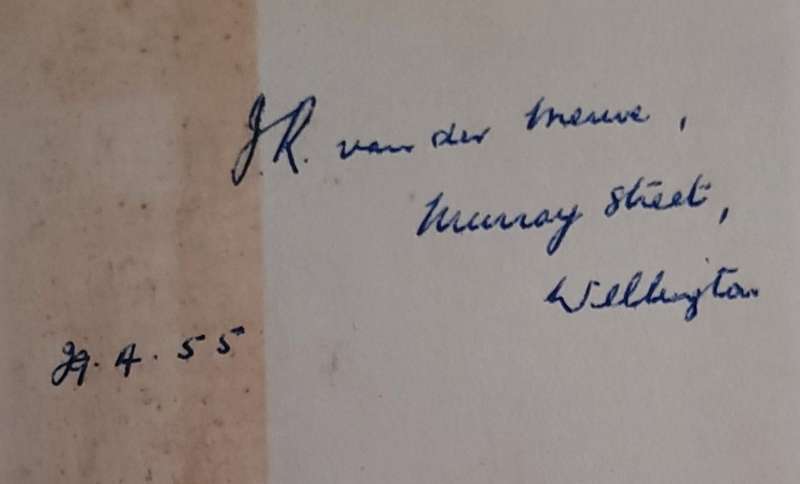 J.R. van der Merwe,
Murray Street,
Wellington
29.4.55